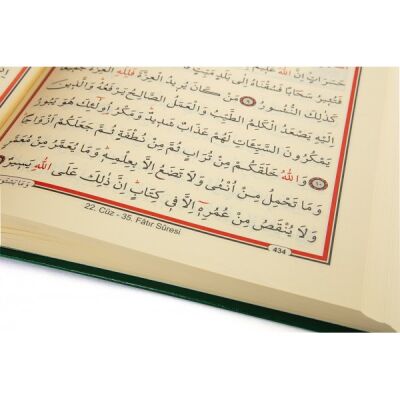 حَسَرَاتٍ اِنَّ اللّٰهَ
فَتُث۪يرُ سَحَابًا فَسُقْنَاهُ اِلٰى بَلَدٍ مَيِّتٍ
كَذٰلِكَ النُّشُورُ ۝٩ مَنْ كَانَ يُر۪يدُ الْعِزَّةَ فَلِلّٰهِ الْعِزَّةُ
اِلَيْهِ يَصْعَدُ الْكَلِمُ الطَّيِّبُ وَالْعَمَلُ الصَّالِحُ يَرْفَعُهُ وَالَّذ۪ينَ
يَمْكُرُونَ السَّيِّـَٔاتِ لَهُمْ عَذَابٌ شَد۪يدٌ وَمَكْرُ اُو۬لٰٓئِكَ هُوَ يَبُورُ
۝١٠ وَاللّٰهُ خَلَقَكُمْ مِنْ تُرَابٍ ثُمَّ مِنْ نُطْفَةٍ ثُمَّ جَعَلَكُمْ اَزْوَاجًا
وَمَا تَحْمِلُ مِنْ اُنْثٰى وَلَا تَضَعُ اِلَّا بِعِلْمِه۪ وَمَا يُعَمَّرُ مِنْ مُعَمَّرٍ
وَلَا يُنْقَصُ مِنْ عُمُرِه۪ٓ اِلَّا ف۪ي كِتَابٍ اِنَّ ذٰلِكَ عَلَى اللّٰهِ يَس۪يرٌ
22. Cüz - 35. Fâtır Sûresi
434